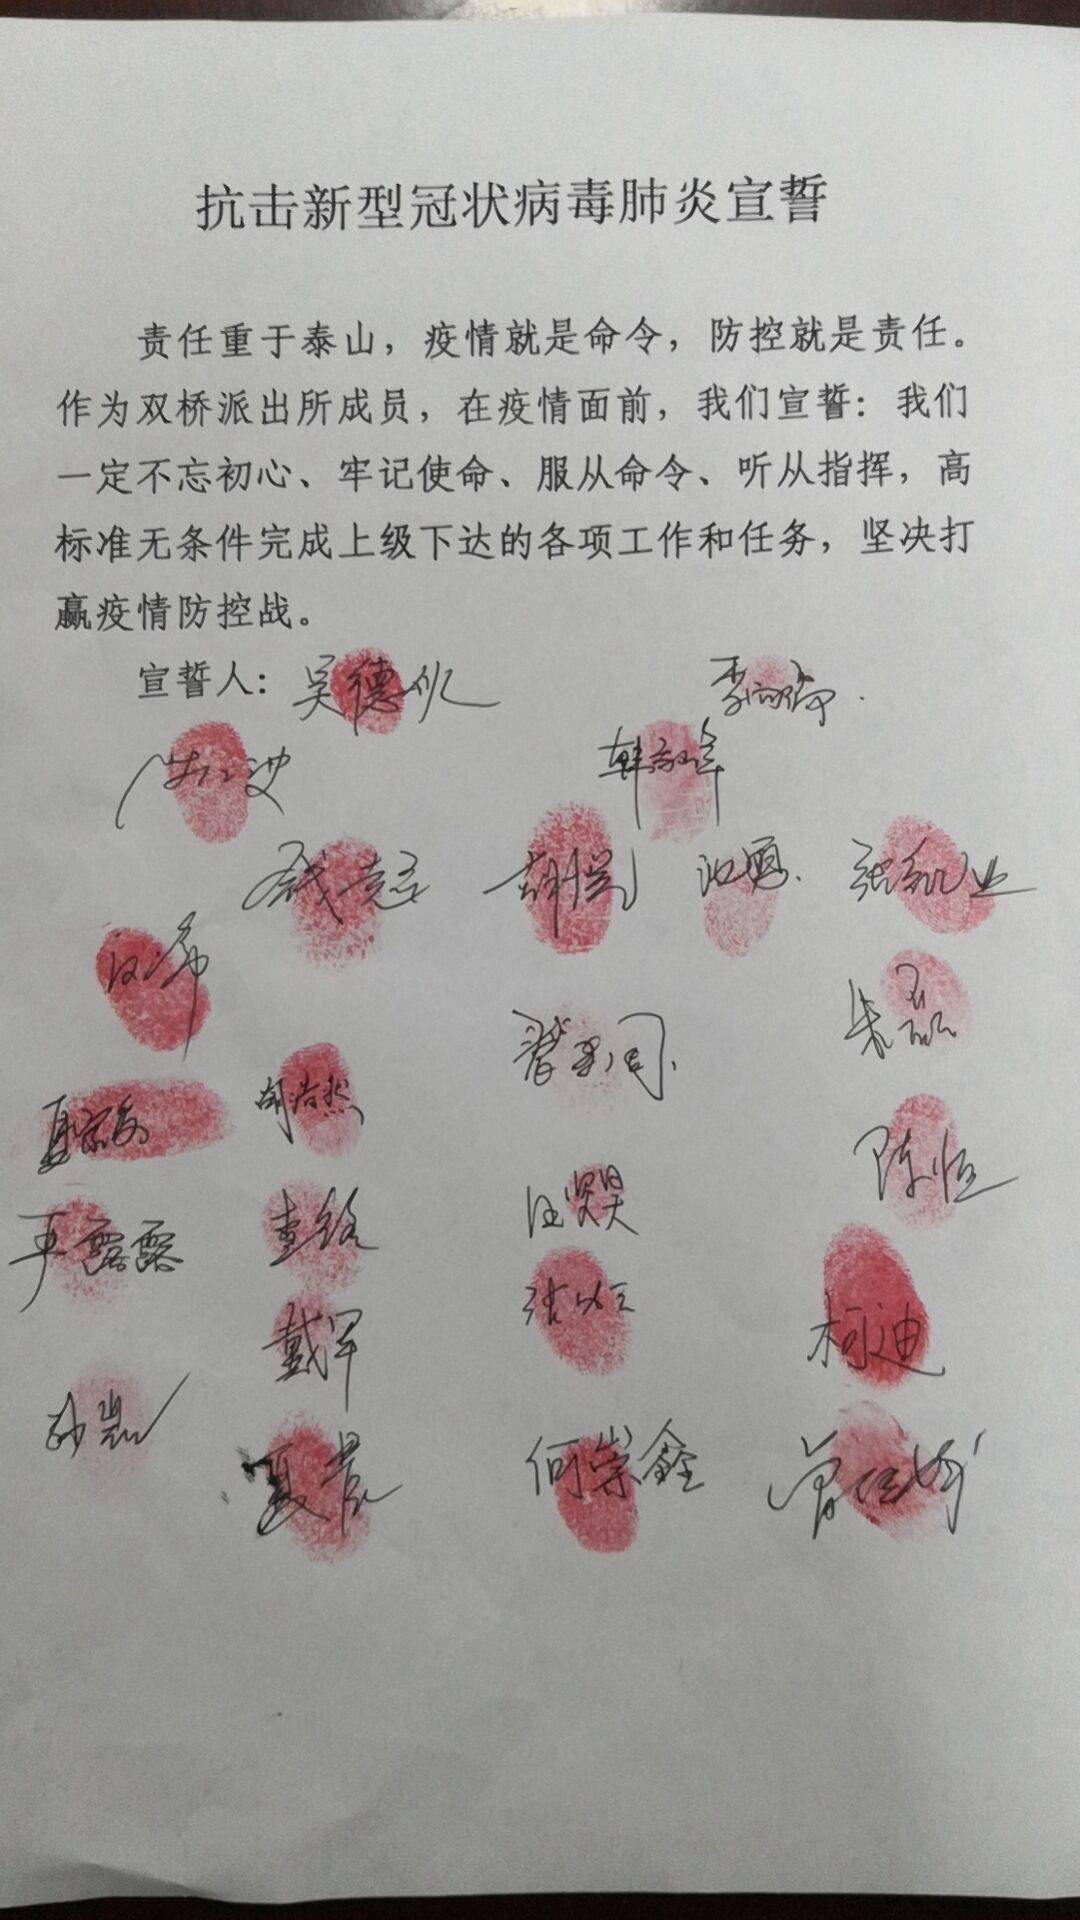 抗击新型冠状病毒肺炎宣誓
责任重于泰山，疫情就是命令，防控就是责任。
作为双桥派出所成员，在疫情面前，我们宣誓：我们
一定不忘初心、牢记使命、服从命令、听从指挥，高
标准无条件完成上级下达的各项工作和任务，坚决打
赢疫情防控战。
宣誓人：吴德
张凯业
朱磊
胡浩然
陈恒
严露露
汪昊
戴军
柯迪
孙凯
夏晨 何崇鑫